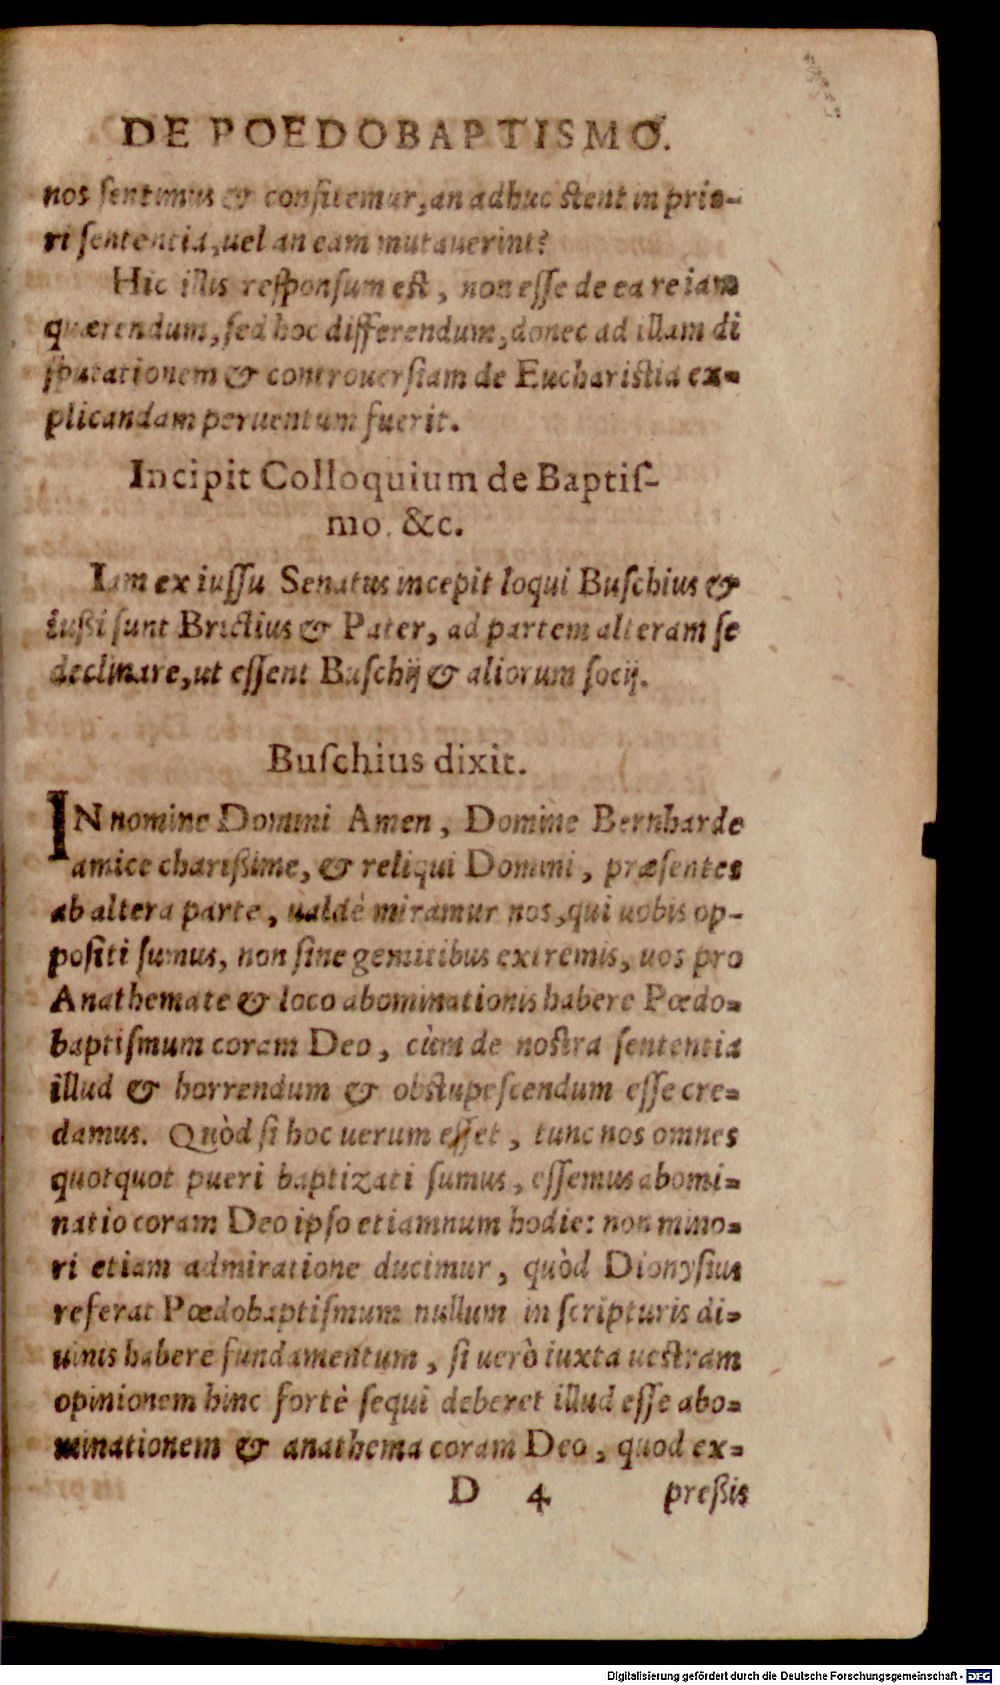 DE POEDOBAPTISMO.
nos sentimus & confitemur, an adhuc stent in prio-
ri sententia, uel an eam mutauerint?
Hic illis responsum est, non esse de ea re iam
quærendum, sed hoc differendum, donec ad illam di
sputationem & controuersiam de Eucharistia ex-
plicandam peruentum fuerit.
Incipit Colloquium de Baptiſ-
mo. &c.
Iam ex iuſſu Senatus incepit loqui Buſchius &
iußi ſunt Brictius & Pater, ad partem alteram ſe
declinare, ut eſſent Buſchij & aliorum ſocij.
Buſchius dixit.
IN nomine Domini Amen, Domine Bernharde
amice charißime, & reliqui Domini, præſentes
ab altera parte, ualdè miramur nos, qui uobis op-
poſiti ſumus, non ſine gemitibus extremis, uos pro
Anathemate & loco abominationis habere Pœdo-
baptiſmum coram Deo, cùm de noſtra ſententia
illud & horrendum & obſtupeſcendum eſſe cre-
damus. Quòd ſi hoc uerum eſſet, tunc nos omnes
quotquot pueri baptizati ſumus, eſſemus abomi-
natio coram Deo ipſo etiamnum hodie: non mino-
ri etiam admiratione ducimur, quòd Dionyſius
referat Pœdobaptiſmum nullum in ſcripturis di-
uinis habere fundamentum, ſi uerò iuxta ueſtram
opinionem hinc fortè ſequi deberet illud eſſe abo-
minationem & anathema coram Deo, quod ex-
D 4 preßis
Digitalisierung gefördert durch die Deutsche Forschungsgemeinschaft - DFG